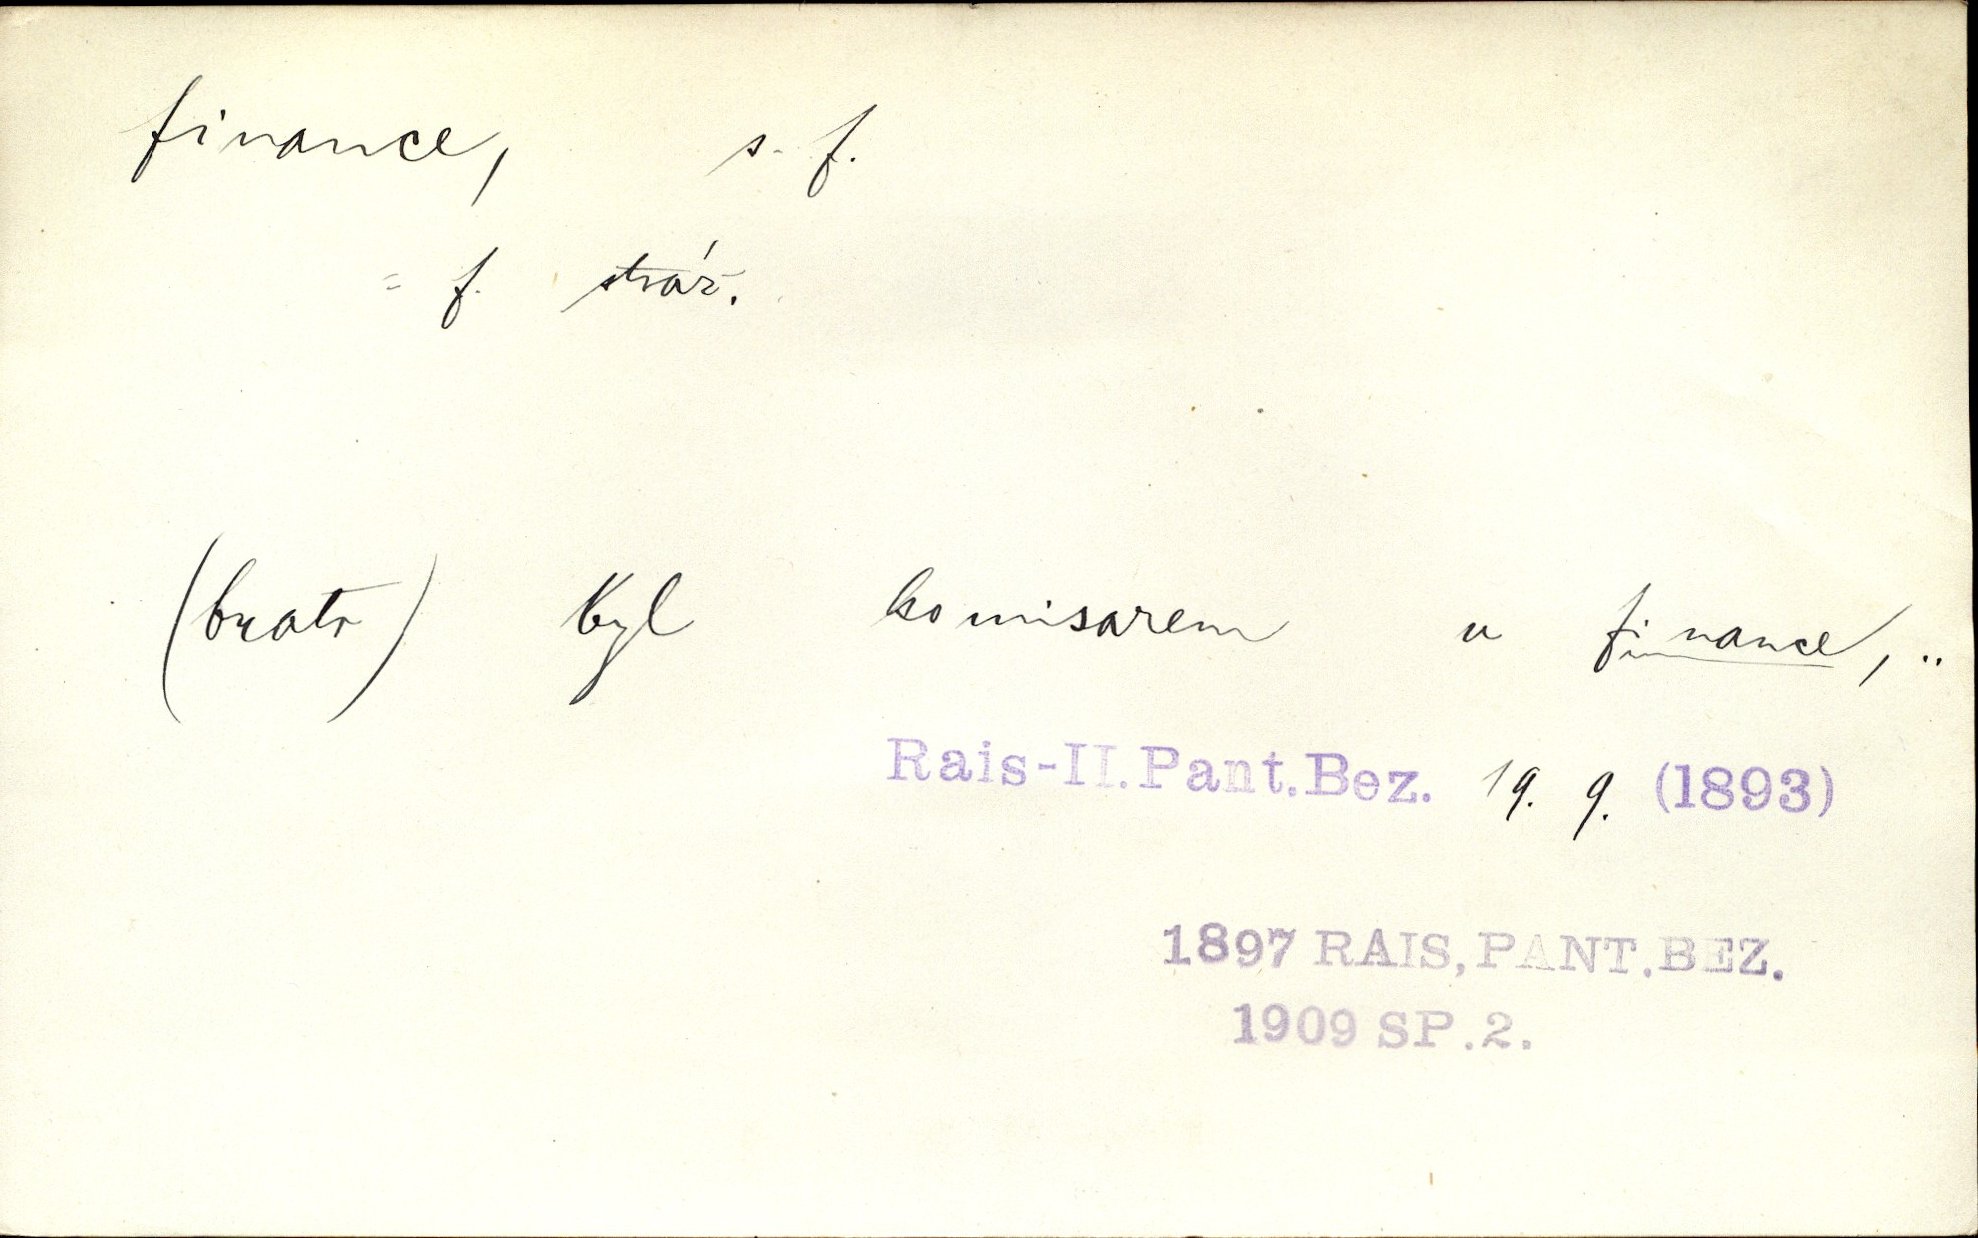 finance, s. f.
= f. stráž.
(bratr) byl komisarem u finance, ..
Rais-II.Pant.Bez. 19. 9. (1893)
1897 RAIS, PANT.BEZ.
1909 SP.2.